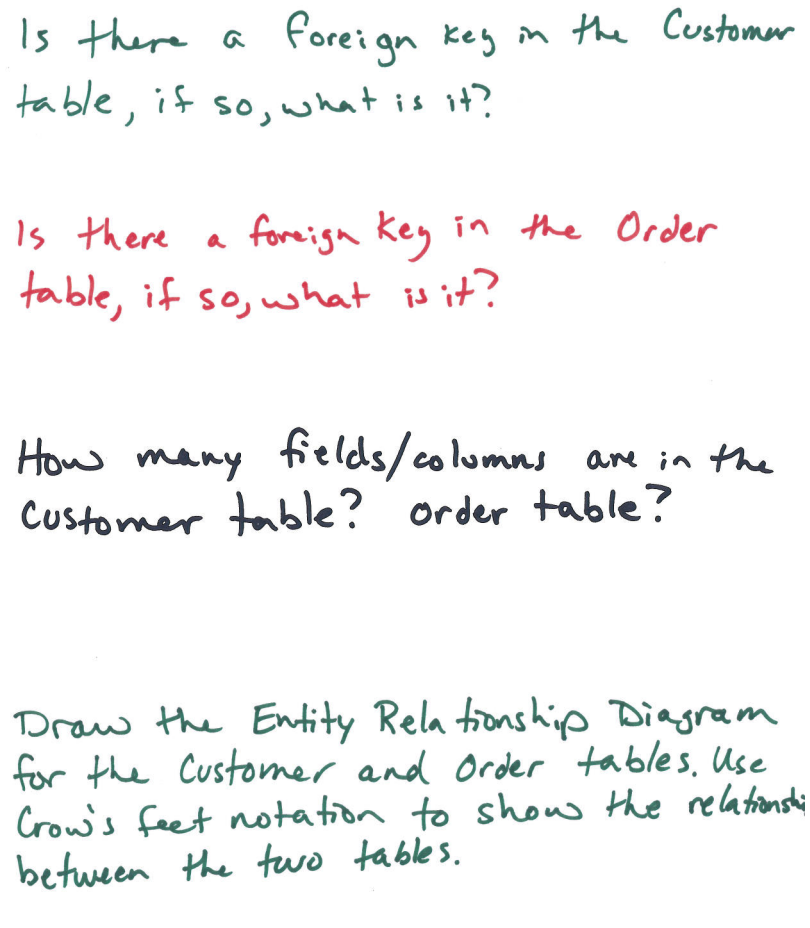 Is there a foreign key in the Customer
table, if so, what is it?
Is there a foreign key in the Order
table, if so, what is it?
How many fields/columns are in the
Customer table? order table?
Draw the Entity Relationship Diagram
for the Customer and Order tables. Use
Crow's feet notation to show the relationshi
between the two tables.